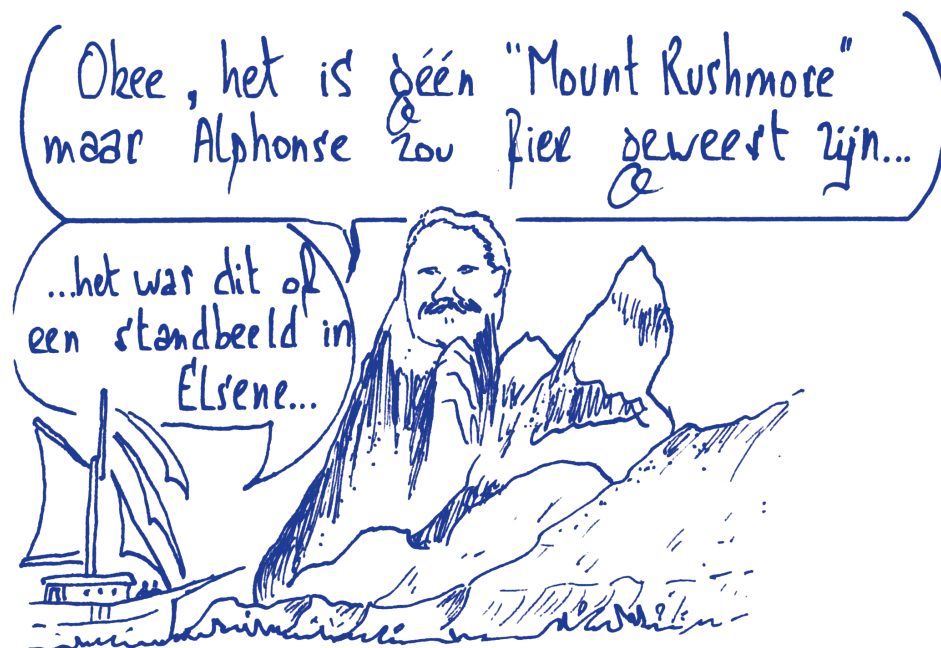 Okee, het is géén "Mount Rushmore"
maar Alphonse zou fier geweest zijn...
...het was dit of
een standbeeld in
Elsene...